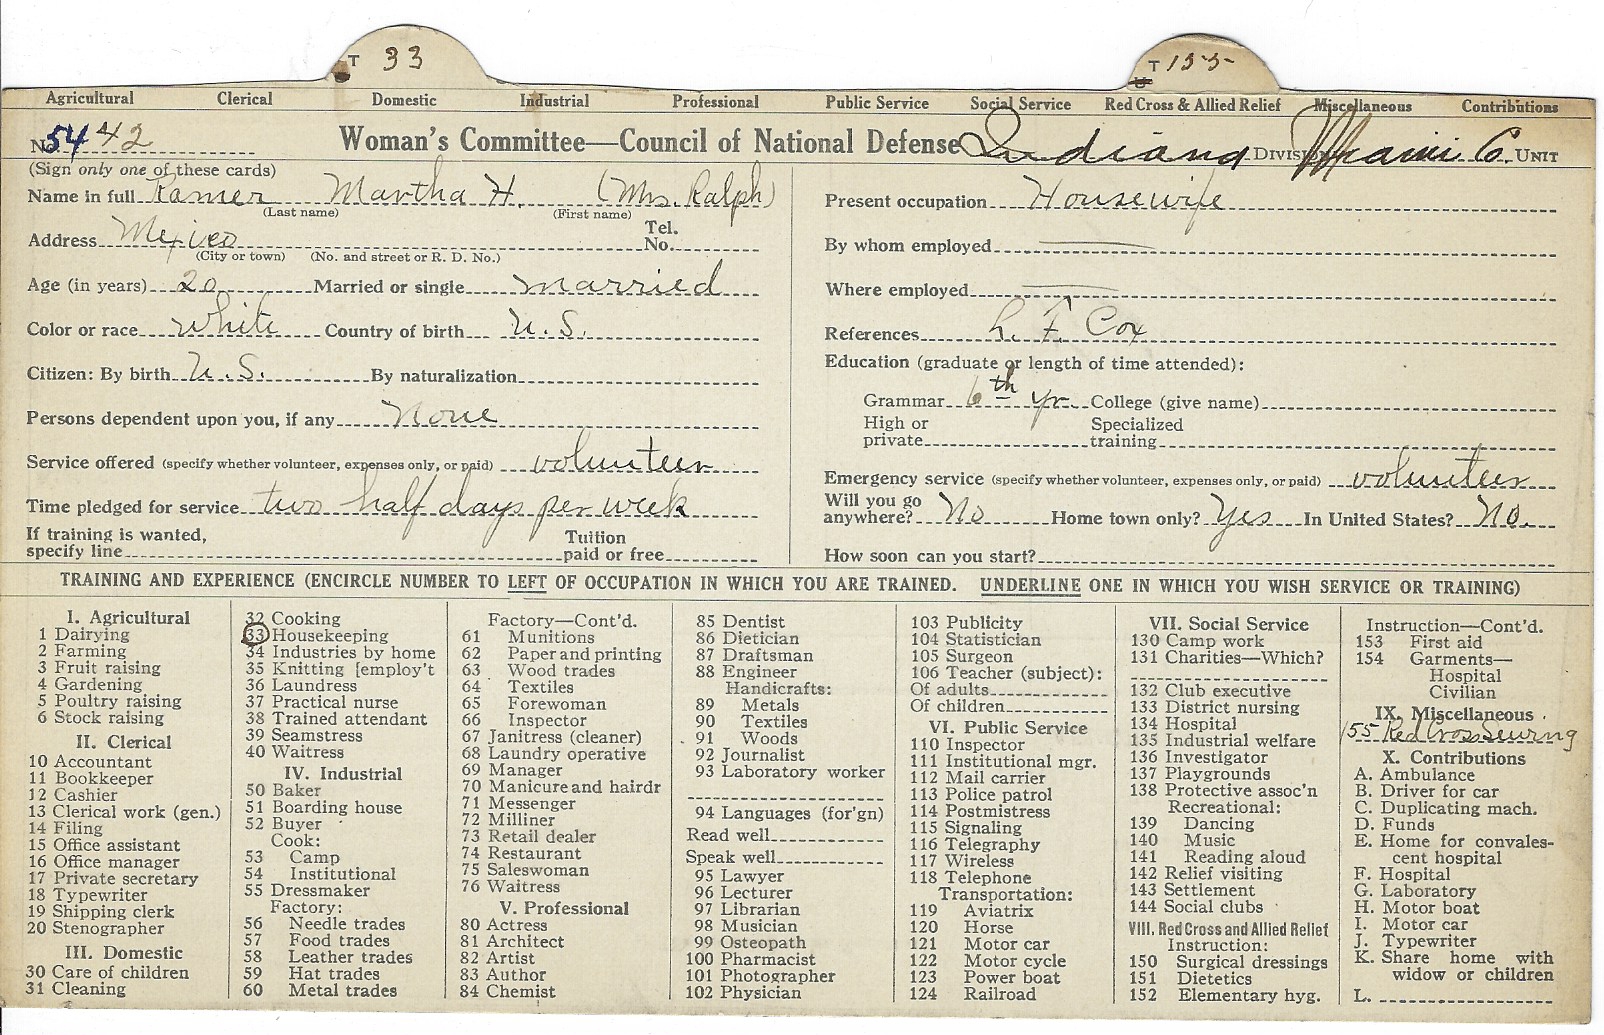 T 33
T 155
Agricultural Clerical Domestic Industrial Professional Public Service Social Service Red Cross & Allied Relief Miscellaneous Contributions
No. 5442 Woman's Committee—Council of National Defense Indiana DIVISION Miami Co. UNIT
(Sign only one of these cards)
Name in full Ramer Martha H. (Mrs. Ralph)
(Last name) (First name)
Address Mexico Tel. No.
(City or town) (No. and street or R. D. No.)
Age (in years) 20 Married or single married
Color or race White Country of birth U.S.
Citizen: By birth U.S. By naturalization
Persons dependent upon you, if any None
Service offered (specify whether volunteer, expenses only, or paid) volunteer
Time pledged for service two half days per week
If training is wanted, specify line Tuition paid or free
Present occupation Housewife
By whom employed
Where employed
References L. F. Cox
Education (graduate or length of time attended):
Grammar 6th yr. College (give name)
High or private Specialized training
Emergency service (specify whether volunteer, expenses only, or paid) volunteer
Will you go anywhere? No Home town only? Yes In United States? No.
How soon can you start?
TRAINING AND EXPERIENCE (ENCIRCLE NUMBER TO LEFT OF OCCUPATION IN WHICH YOU ARE TRAINED. UNDERLINE ONE IN WHICH YOU WISH SERVICE OR TRAINING)
I. Agricultural
1 Dairying
2 Farming
3 Fruit raising
4 Gardening
5 Poultry raising
6 Stock raising
II. Clerical
10 Accountant
11 Bookkeeper
12 Cashier
13 Clerical work (gen.)
14 Filing
15 Office assistant
16 Office manager
17 Private secretary
18 Typewriter
19 Shipping clerk
20 Stenographer
III. Domestic
30 Care of children
31 Cleaning
32 Cooking
33 Housekeeping
34 Industries by home
35 Knitting [employ't
36 Laundress
37 Practical nurse
38 Trained attendant
39 Seamstress
40 Waitress
IV. Industrial
50 Baker
51 Boarding house
52 Buyer
Cook:
53 Camp
54 Institutional
55 Dressmaker
Factory:
56 Needle trades
57 Food trades
58 Leather trades
59 Hat trades
60 Metal trades
Factory—Cont'd.
61 Munitions
62 Paper and printing
63 Wood trades
64 Textiles
65 Forewoman
66 Inspector
67 Janitress (cleaner)
68 Laundry operative
69 Manager
70 Manicure and hairdr
71 Messenger
72 Milliner
73 Retail dealer
74 Restaurant
75 Saleswoman
76 Waitress
V. Professional
80 Actress
81 Architect
82 Artist
83 Author
84 Chemist
85 Dentist
86 Dietician
87 Draftsman
88 Engineer
Handicrafts:
89 Metals
90 Textiles
91 Woods
92 Journalist
93 Laboratory worker
94 Languages (for'gn)
Read well
Speak well
95 Lawyer
96 Lecturer
97 Librarian
98 Musician
99 Osteopath
100 Pharmacist
101 Photographer
102 Physician
103 Publicity
104 Statistician
105 Surgeon
106 Teacher (subject):
Of adults
Of children
VI. Public Service
110 Inspector
111 Institutional mgr.
112 Mail carrier
113 Police patrol
114 Postmistress
115 Signaling
116 Telegraphy
117 Wireless
118 Telephone
Transportation:
119 Aviatrix
120 Horse
121 Motor car
122 Motor cycle
123 Power boat
124 Railroad
VII. Social Service
130 Camp work
131 Charities—Which?
132 Club executive
133 District nursing
134 Hospital
135 Industrial welfare
136 Investigator
137 Playgrounds
138 Protective assoc'n
Recreational:
139 Dancing
140 Music
141 Reading aloud
142 Relief visiting
143 Settlement
144 Social clubs
VIII. Red Cross and Allied Relief
Instruction:
150 Surgical dressings
151 Dietetics
152 Elementary hyg.
Instruction—Cont'd.
153 First aid
154 Garments—
Hospital
Civilian
IX. Miscellaneous
155 Red Cross Sewing
X. Contributions
A. Ambulance
B. Driver for car
C. Duplicating mach.
D. Funds
E. Home for convales-
cent hospital
F. Hospital
G. Laboratory
H. Motor boat
I. Motor car
J. Typewriter
K. Share home with
widow or children
L.